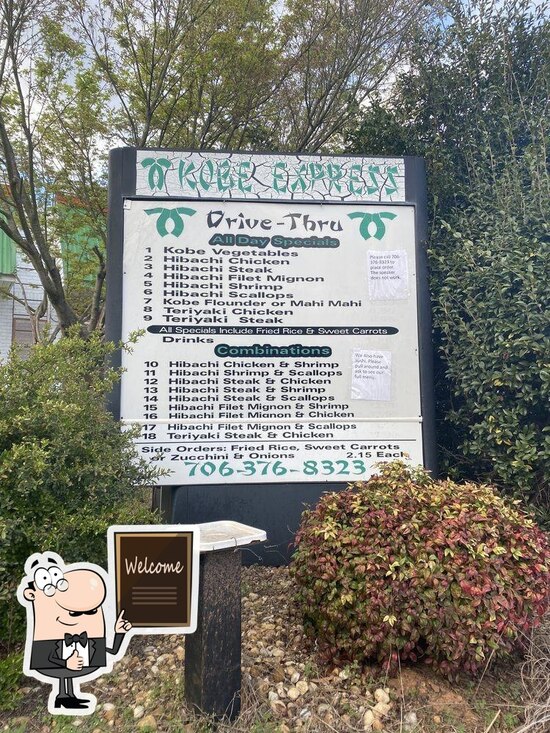 KOBE EXPRESS
Drive-Thru
All Day Specials
1 Kobe Vegetables
2 Hibachi Chicken
3 Hibachi Steak
4 Hibachi Filet Mignon
5 Hibachi Shrimp
6 Hibachi Scallops
7 Kobe Flounder or Mahi Mahi
8 Teriyaki Chicken
9 Teriyaki Steak
All Specials Include Fried Rice & Sweet Carrots
Drinks
Please call 706-
376-8323 to
place order.
The speaker
does not work.
Combinations
10 Hibachi Chicken & Shrimp
11 Hibachi Shrimp & Scallops
12 Hibachi Steak & Chicken
13 Hibachi Steak & Shrimp
14 Hibachi Steak & Scallops
15 Hibachi Filet Mignon & Shrimp
16 Hibachi Filet Mignon & Chicken
17 Hibachi Filet Mignon & Scallops
18 Teriyaki Steak & Chicken
We Also have
sushi. Please
pull around and
ask to see our
full menu.
Side Orders: Fried Rice, Sweet Carrots
or Zucchini & Onions 2.15 Each
706-376-8323
Welcome